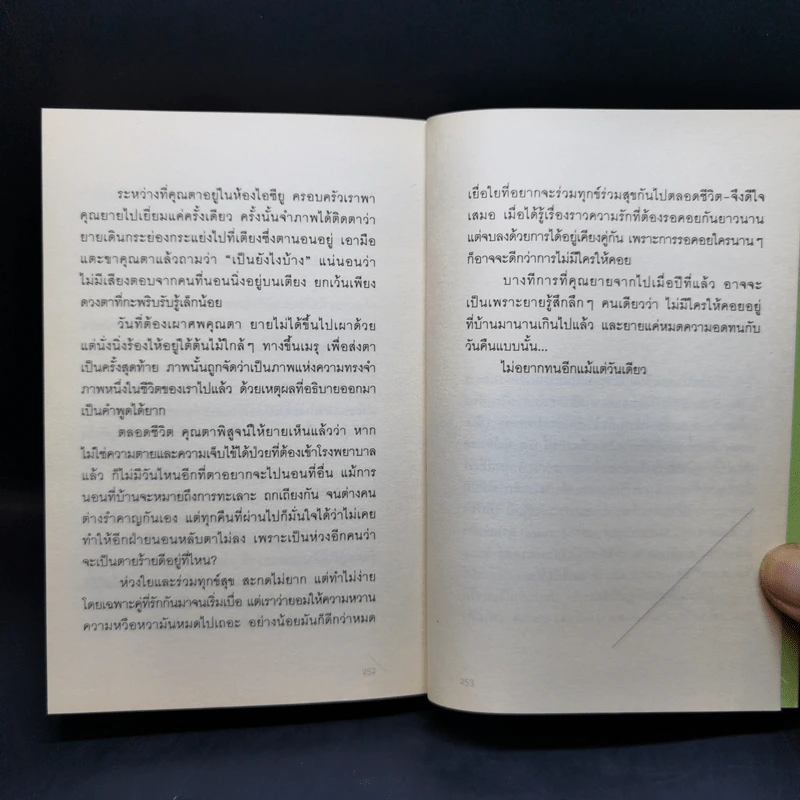 ระหว่างที่คุณตาอยู่ในห้องไอซียู ครอบครัวเราพา
คุณยายไปเยี่ยมแค่ครั้งเดียว ครั้งนั้นจำภาพได้ติดตาว่า
ยายเดินกระย่องกระแย่งไปที่เตียงซึ่งตานอนอยู่ เอามือ
แตะขาคุณตาแล้วถามว่า “เป็นยังไงบ้าง” แน่นอนว่า
ไม่มีเสียงตอบจากคนที่นอนนิ่งอยู่บนเตียง ยกเว้นเพียง
ดวงตาที่กะพริบรับรู้เล็กน้อย
วันที่ต้องเผาศพคุณตา ยายไม่ได้ขึ้นไปเผาด้วย
แต่นั่งนิ่งร้องไห้อยู่ใต้ต้นไม้ใกล้ๆ ทางขึ้นเมรุ เพื่อส่งตา
เป็นครั้งสุดท้าย ภาพนั้นถูกจัดว่าเป็นภาพแห่งความทรงจำ
ภาพหนึ่งในชีวิตของเราไปแล้ว ด้วยเหตุผลที่อธิบายออกมา
เป็นคำพูดได้ยาก
ตลอดชีวิต คุณตาพิสูจน์ให้ยายเห็นแล้วว่า หาก
ไม่ใช่ความตายและความเจ็บไข้ได้ป่วยที่ต้องเข้าโรงพยาบาล
แล้ว ก็ไม่มีวันไหนอีกที่ตาอยากจะไปนอนที่อื่น แม้การ
นอนที่บ้านจะหมายถึงการทะเลาะ ถกเถียงกัน จนต่างคน
ต่างรำคาญกันเอง แต่ทุกคืนที่ผ่านไปก็มั่นใจได้ว่าไม่เคย
ทำให้อีกฝ่ายนอนหลับตาไม่ลง เพราะเป็นห่วงอีกคนว่า
จะเป็นตายร้ายดีอยู่ที่ไหน?
ห่วงใยและร่วมทุกข์สุข สะกดไม่ยาก แต่ทำไม่ง่าย
โดยเฉพาะคู่ที่รักกันมาจนเริ่มเบื่อ แต่เราว่ายอมให้ความหวาน
ความหวือหวามันหมดไปเถอะ อย่างน้อยมันก็ดีกว่าหมด
252
เยื่อใยที่อยากจะร่วมทุกข์ร่วมสุขกันไปตลอดชีวิต-จึงดีใจ
เสมอ เมื่อได้รู้เรื่องราวความรักที่ต้องรอคอยกันยาวนาน
แต่จบลงด้วยการได้อยู่เคียงคู่กัน เพราะการรอคอยใครนานๆ
ก็อาจจะดีกว่าการไม่มีใครให้คอย
บางทีการที่คุณยายจากไปเมื่อปีที่แล้ว อาจจะ
เป็นเพราะยายรู้สึกลึกๆ คนเดียวว่า ไม่มีใครให้คอยอยู่
ที่บ้านมานานเกินไปแล้ว และยายแค่หมดความอดทนกับ
วันคืนแบบนั้น...
ไม่อยากทนอีกแม้แต่วันเดียว
253